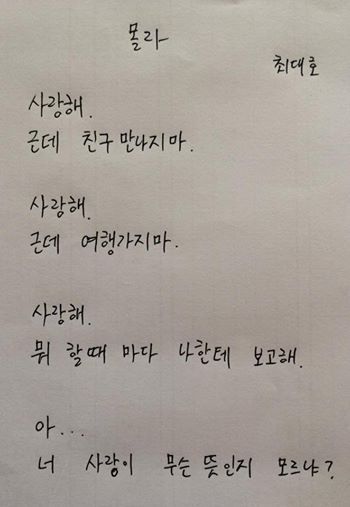 몰라
최대호
사랑해.
근데 친구 만나지마.
사랑해.
근데 여행가지마.
사랑해.
뭐 할때 마다 나한테 보고해.
아...
너 사랑이 무슨 뜻인지 모르냐?